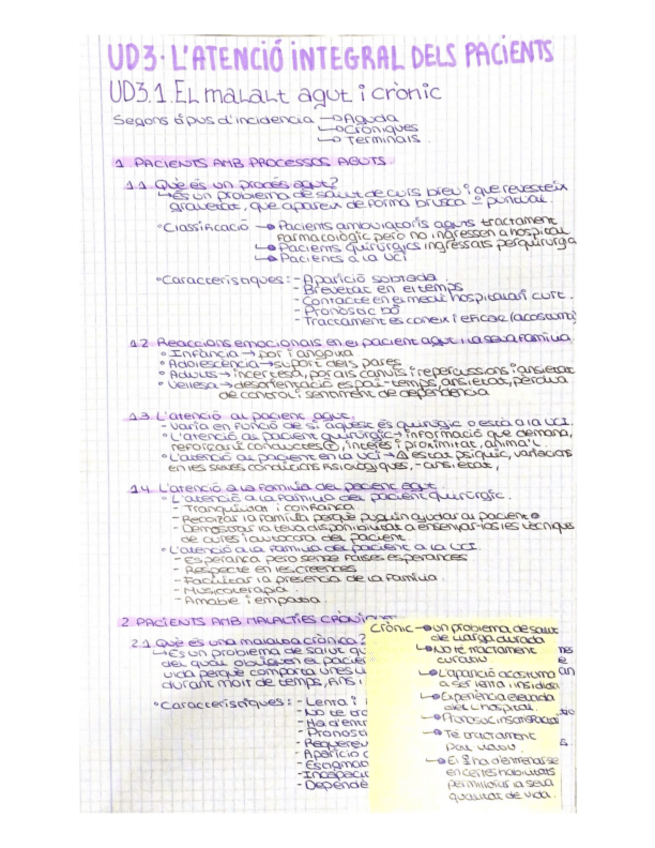 UD3. L'ATENCIÓ INTEGRAL DELS PACIENTS
UD3.1. El malalt agut i crònic
Segons tipus d'incidencia → Aguda
→ Cròniques
→ Terminals
1 PACIENTS AMB PROCESSOS AGUTS
1.1. Què és un procés agut?
↳ És un problema de salut de curs breu i que revesteix
gravetat, que apareix de forma brusca o puntual.
• Classificació → Pacients ambulatoris aguts tractament
farmacològic però no ingressen a hospital
→ Pacients quirúrgics ingressats per quirurgia
→ Pacients a la UCI
• Característiques: - Aparició sobtada.
- Brevetat en el temps
- Contacte en el medi hospitalari curt.
- Pronòstic bo
- Tractament és coneix i eficac (acostuma)
1.2 Reaccions emocionals en el pacient agut i la seva família
• Infància → por i angoixa
• Adolescència → suport dels pares
• Adults → incertesa, por als canvis i repercussions i ansietat
• Vellesa → desorientació espai-temps, ansietat, pèrdua
de control i sentiment de dependència
1.3. L'atenció al pacient agut.
- Varia en funció de si aquest és quirúrgic o està a la UCI.
• L'atenció al pacient quirúrgic → informació que demana,
reforçant conductes +, interès i proximitat, anima'l
• L'atenció al pacient en la UCI → Δ estat psíquic, variacions
en les seves condicions fisiològiques, - ansietat,
1.4. L'atenció a la família del pacient agut
• L'atenció a la família del pacient quirúrgic.
- Tranquil·litat i confiança
- Recolzar la família perquè puguin ajudar al pacient
- Demostrar la teva disponibilitat a ensenyar-los les tècniques
de cures i autocura del pacient.
• L'atenció a la família del pacient a la UCI.
- Esperança però sense falses esperances
- Respecte en les creences
- Facilitar la presència de la família.
- Musicoteràpia
- Amable i empatia.
2 PACIENTS AMB MALALTIES CRÒNIQUES
2.1. Què és una malaltia crònica?
↳ És un problema de salut qu
del qual obliguen el pacie
vida perquè comporta unes li
durant molt de temps, fins i
• Característiques: - Lenta i i
- No té tra
- Ha d'entr
- Pronòst
- Requereix
- Aparició d
- Estigmat
- Incapacit
- Dependè
Crònic → un problema de salut
de llarga durada
→ No té tractament
curatiu
→ L'aparició acostuma
a ser lenta i insidiosa
→ Experiència elevada
a l'hospital.
→ Pronòstic insatisfactori
→ Té tractament
pal·liatiu.
→ El ha d'entrenar-se
en certes habilitats
per millorar la seva
qualitat de vida.